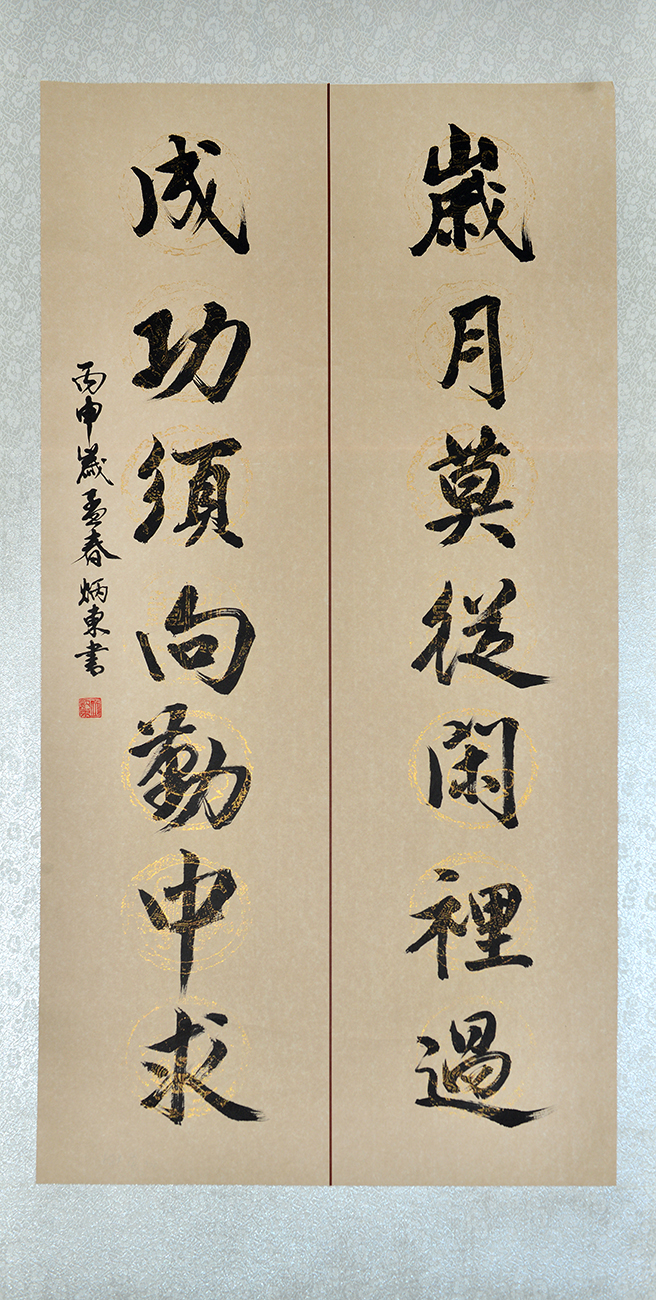 歲月莫從閑裡過
成功須向勤中求
丙申歲孟春炳東書